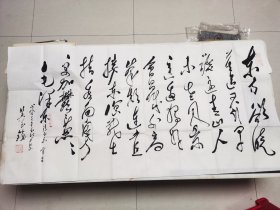 东方欲晓
莫道君行早
踏遍青山人
未老风景
这边独好
会昌城外高
峰颠连直
接东溟战士
指看南粤
更加郁郁葱葱
毛泽东